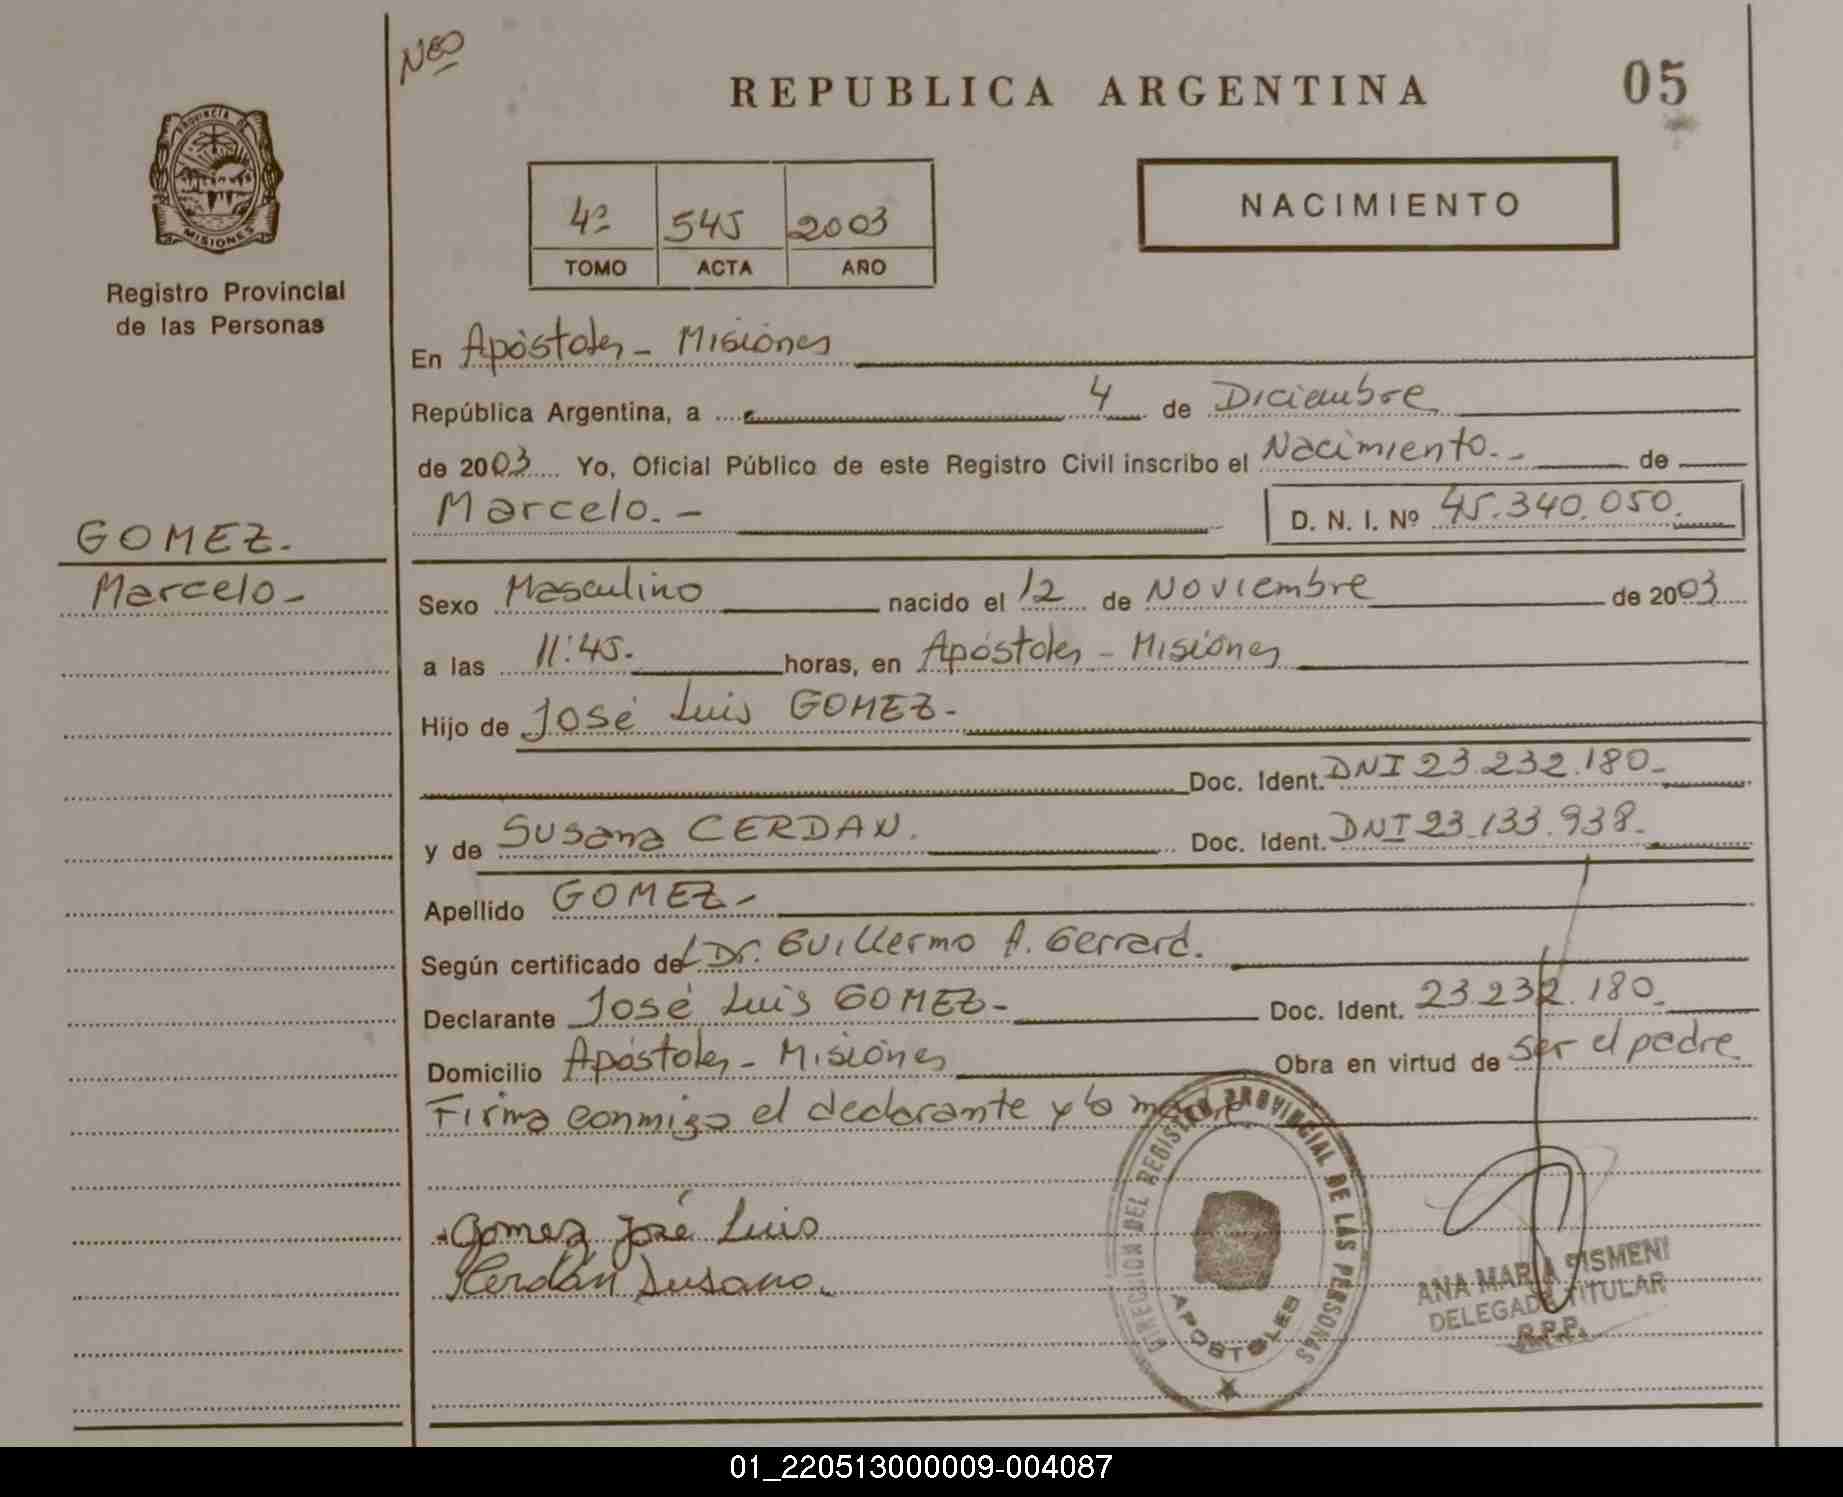 Neo
REPUBLICA ARGENTINA
05
PROVINCIA DE
MISIONES
Registro Provincial
de las Personas
4º 545 2003
TOMO ACTA AÑO
NACIMIENTO
En Apóstoles - Misiones
República Argentina, a 4 de Diciembre
de 2003 Yo, Oficial Público de este Registro Civil inscribo el Nacimiento.- de
Marcelo.- D. N. I. Nº 45.340.050.
GOMEZ.
Marcelo-
Sexo Masculino nacido el 12 de Noviembre de 2003
a las 11:45. horas, en Apóstoles - Misiones
Hijo de José Luis GOMEZ-
Doc. Ident. DNI 23.232.180-
y de Susana CERDAN. Doc. Ident. DNI 23.133.938-
Apellido GOMEZ-
Según certificado del Dr. Guillermo A. Gerrard.
Declarante José Luis GOMEZ- Doc. Ident. 23.232.180.
Domicilio Apóstoles - Misiones Obra en virtud de ser el padre
Firma conmigo el declarante y la madre.
Gomez José Luis
Kerdán Susana.
DIRECCION DEL REGISTRO PROVINCIAL DE LAS PERSONAS
APOSTOLES
ANA MARIA SISMENI
DELEGADA TITULAR
R.P.P.
01_220513000009-004087